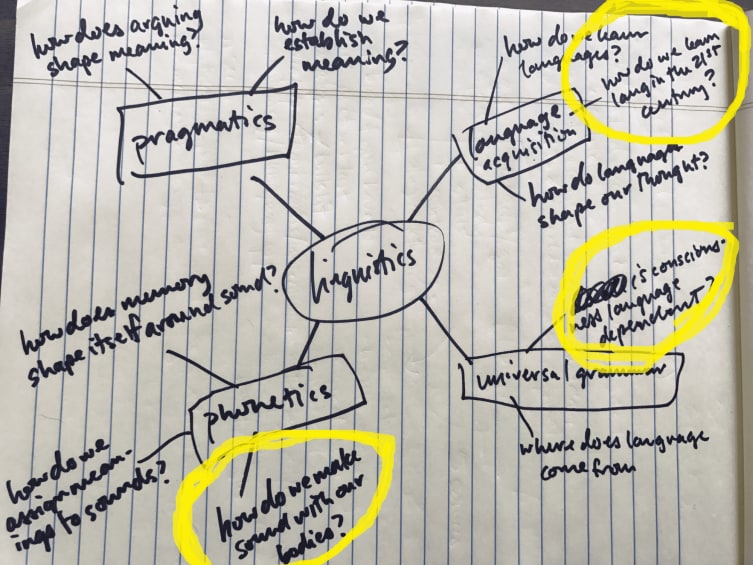 how does arguing
shape meaning?
how do we
establish
meaning?
pragmatics
how do we learn
languages?
how do we learn
lang in the 21st
century?
language
acquisition
how do language
shape our thought?
linguistics
how does memory
shape itself around sound?
phonetics
how do we
assign mean-
ings to sounds?
how do we make
sound with our
bodies?
is conscious-
ness language
dependent?
universal grammar
where does language
come from